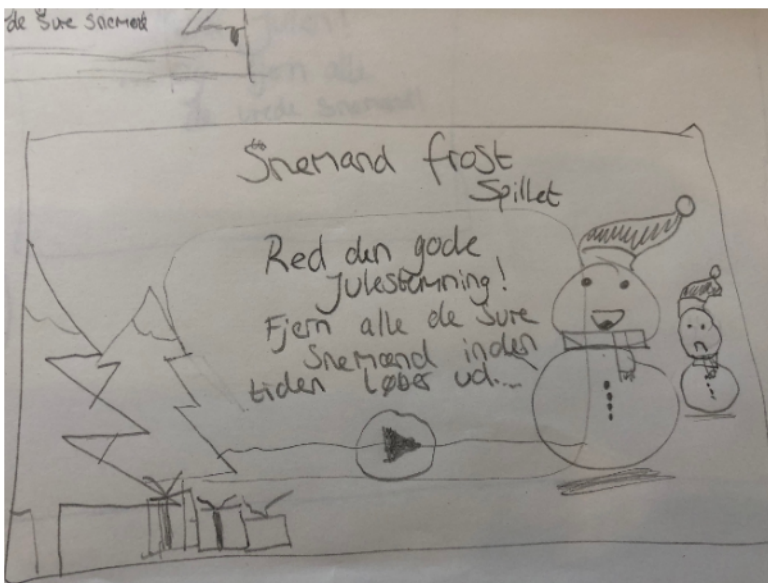 de sure snemænd
Snemand frost
Spillet
Red den gode
Julestemning!
Fjern alle de sure
Snemænd inden
tiden løber ud...